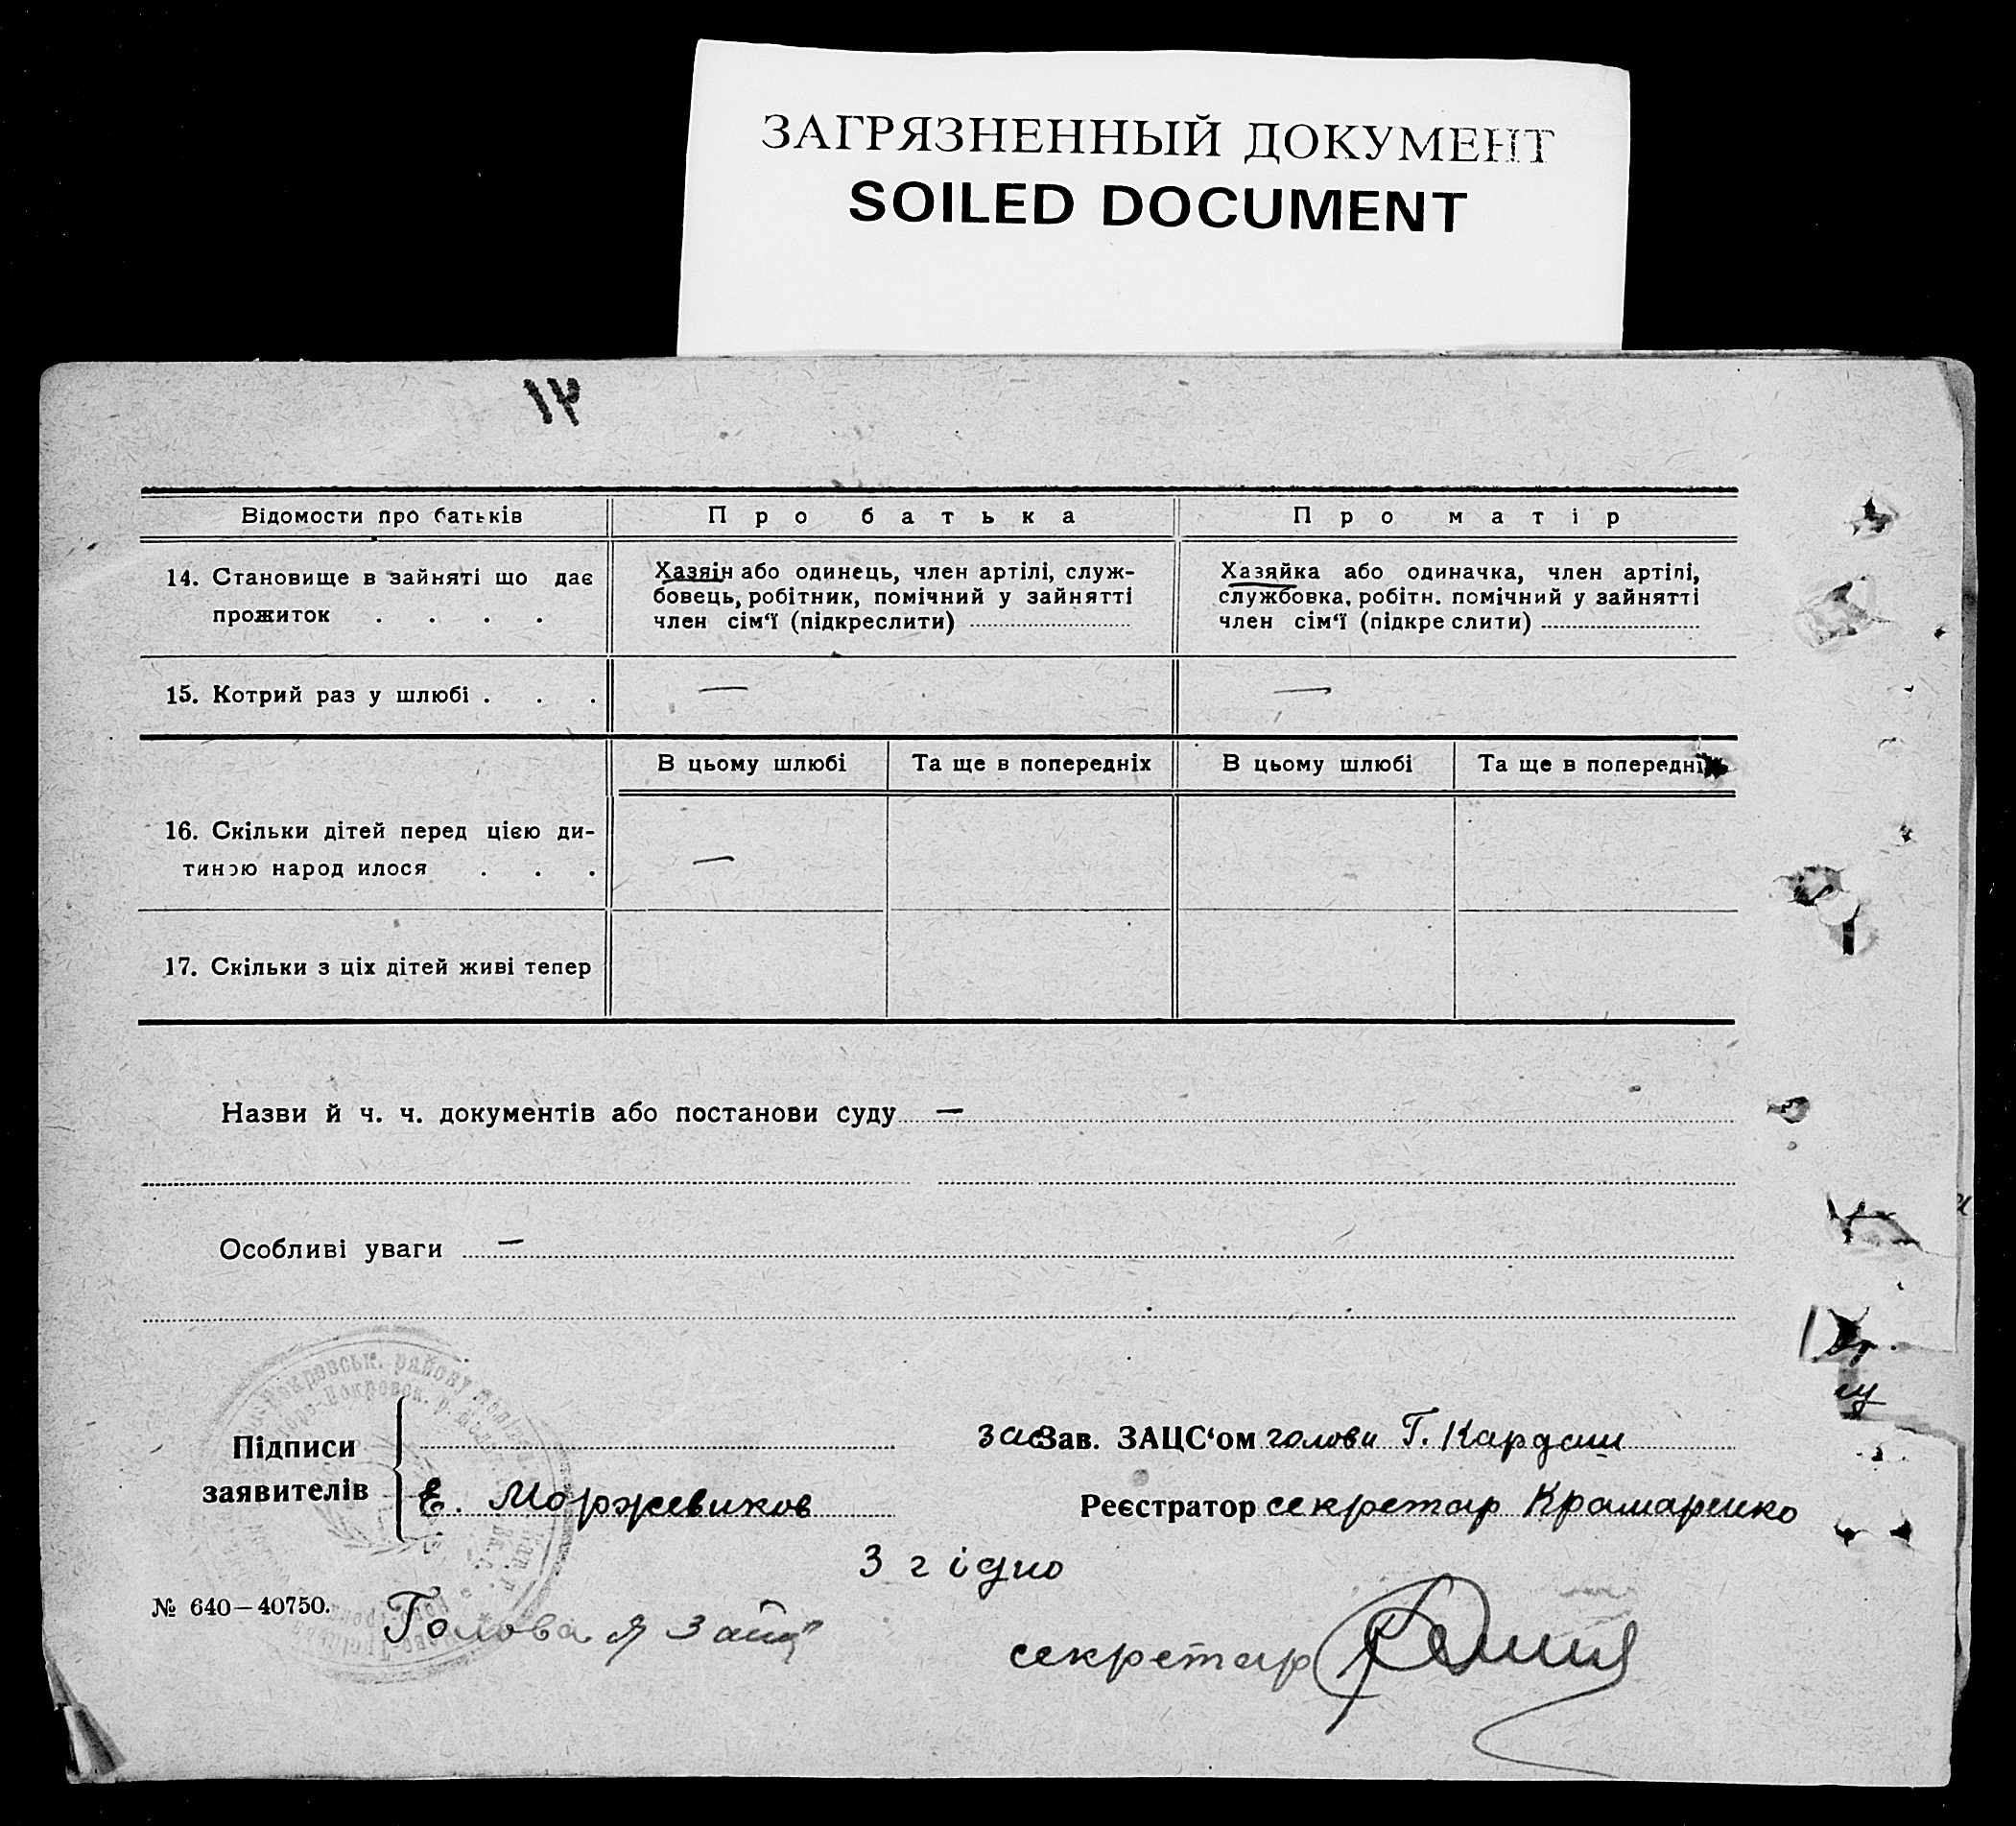 ЗАГРЯЗНЕННЫЙ ДОКУМЕНТ
SOILED DOCUMENT
Відомости про батьків
Про батька
Про матір
14. Становище в зайняті що дає
прожиток . . . .
Хазяін або одинець, член артілі, служ-
бовець, робітник, помічний у зайнятті
член сім‘ї (підкреслити)
Хазяйка або одиначка, член артілі,
службовка, робітн. помічний у зайнятті
член сім‘ї (підкре слити)
15. Котрий раз у шлюбі . . .
—
—
В цьому шлюбі
Та ще в попередніх
В цьому шлюбі
Та ще в попередніх
16. Скільки дітей перед цією ди-
тиною народ илося . . .
—
17. Скільки з ціх дітей живі тепер
Назви й ч. ч. документів або постанови суду —
Особливі уваги —
Підписи
заявителів
Е. Моржевиков
Зав. ЗАЦС‘ом голови Г. Кардаш
Реєстратор секретар Крамаренко
Згідно
№ 640—40750.
Голова
секретар